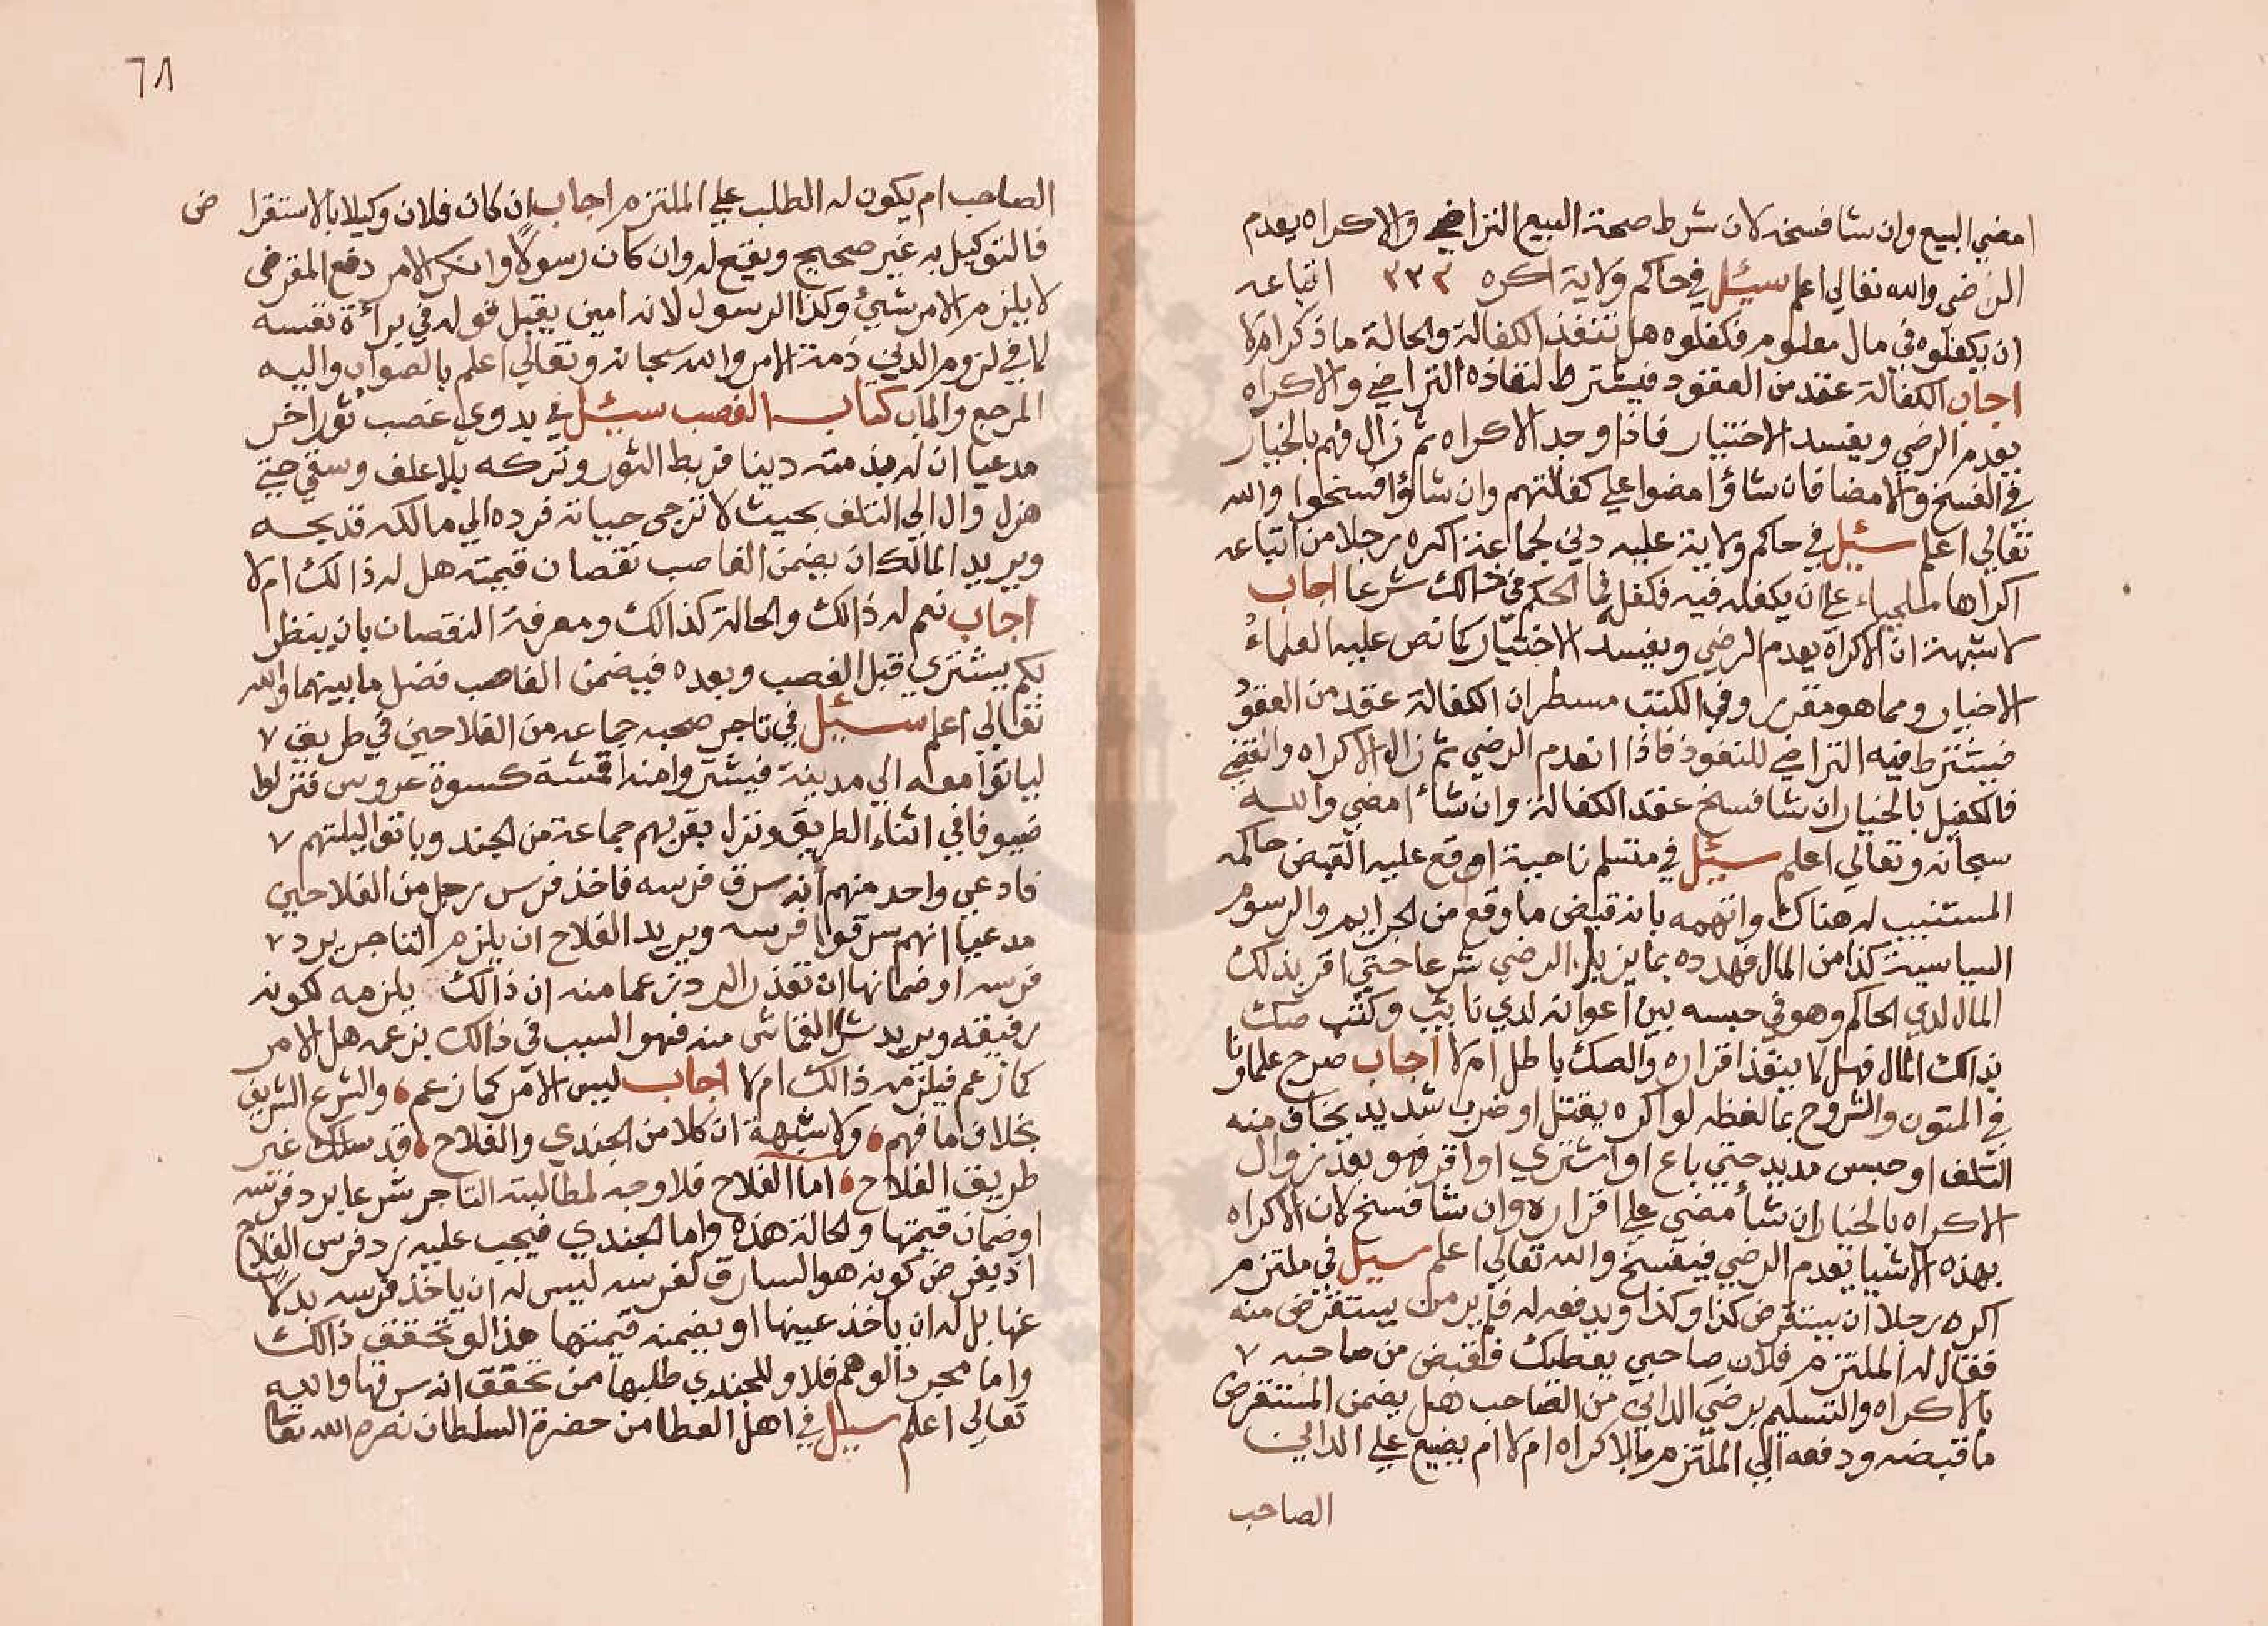 امضي البيع وان شا فسخه لان شرط صحة البيع التراضي والاكراه يعدم
الرضي والله تعالي اعلم سئيل في حاكم ولاية اكره ٣٣٣ اتباعه
ان يكفلوه في مال معلوم فكفلوه هل تنفذ الكفالة والحالة ما ذكر ام لا
اجاب الكفالة عقد من العقود فيشترط لنفاذه التراضي والاكراه
يعدم الرضي ويفسد الاختيار فاذا وجد الاكراه ثم زال فهم بالخيار
في الفسخ والامضا فان شاؤا امضوا علي كفالتهم وان شاؤا فسخوا والله
تعالي اعلم سئيل في حاكم ولاية عليه دين لجماعة اكره رجلا من اتباعه
اكراها ملجياء علي ان يكفله فيه فكفل فما الحكم في ذالك شرعا اجاب
لا شبهة ان الاكراه يعدم الرضي ويفسد الاختيار كما نص عليه العلماء
الاخيار ومما هو مقرر وفي الكتب مسطر ان الكفالة عقد من العقود
فيشترط فيه التراضي للنفوذ فاذا انعدم الرضي ثم زال الاكراه وانقضي
فالكفيل بالخيار ان شا فسخ عقد الكفالة وان شاء امضي والله
سبحانه وتعالي اعلم سئيل في متسلم ناحية اوقع عليه القبض حاكمه
المستنيب له هناك واتهمه بانه قبض ما وقع من الجرايم والرسوم
السياسية كذا من المال فهدده بما يزيل الرضي شرعا حتي اقر بذلك
المال لدي الحاكم وهو في حبسه بين اعوانه لدي نائب وكتب صك
بذالك المال فهل لا ينفذ اقراره والصك باطل ام لا اجاب صرح علماونا
في المتون والشروح بما لفظه لو اكره بقتل او ضرب شديد يخاف منه
التلف او حبس مديد حتي باع او اشتري او اقر فهو بعد زوال
الاكراه بالخيار ان شاء مضي علي اقراره وان شا فسخ لان الاكراه
بهذه الاشيا يعدم الرضي فيفسخ والله تعالي اعلم سيل في ملتزم
اكره رجلا ان يستقرض كذا وكذا ويدفعه له فلم ير من يستقرض منه
فقال له الملتزم فلان صاحبي يعطيك فاقبض من صاحبه ٧
بالاكراه والتسليم برضي الداين من الصاحب هل يضمن المستقرض
ما قبضه ودفعه الي الملتزم بالاكراه ام لا ام يضيع علي الداين
الصاحب
٦٨
الصاحب ام يكون له الطلب علي الملتزم اجاب ان كان فلان وكيلا بالاستقرا ض
فالتوكيل به غير صحيح ويقع له وان كان رسولا وانكر الامر دفع المقرض
لا يلزم الامر شيئ وكذا الرسول لانه امين يقبل قوله في براءة نفسه
لا في لزوم الدين ذمة الامر والله سبحانه وتعالي اعلم بالصواب واليه
المرجع والماب كتاب الغصب سئيل في بدوي غصب ثور اخر
مدعيا ان له بذمته دينا فربط الثور وتركه بلا علف وسقي حتي
هزل وال الي التلف بحيث لا ترجي حياته فرده الي مالكه فذبحه
ويريد المالك ان يضمن الغاصب نقصان قيمته هل له ذالك ام لا
اجاب نعم له ذالك والحالة كذالك ومعرفة النقصان بان ينظر
بكم يشتري قبل الغصب وبعده فيضمن الغاصب فضل ما بينهما والله
تعالي اعلم سئيل في تاجر صحبه جماعه من الفلاحين في طريق ٧
لياتوا معه الي مدينة فيشتروا منه اقمشة كسوة عروس فنزلوا
ضيوفا في اثناء الطريق ونزل بقربهم جماعة من الجند وباتوا ليلتهم ٧
فادعي واحد منهم انه سرق فرسه فاخذ فرس رجل من الفلاحين
مدعيا انهم سرقوا فرسه ويريد الفلاح ان يلزم التاجر برد ٧
فرسه او ضمانها ان تعذر الرد زعما منه ان ذالك يلزمه لكونه
رفيقه ويريد شرا القماش منه فهو السبب في ذالك بزعمه هل الامر
كما زعم فيلزمه ذالك ام لا اجاب ليس الامر كما زعم والشرع الشريف
بخلاف ما فهم ولا شبهة ان كلا من الجندي والفلاح قد سلك غير
طريق الفلاح اما الفلاح فلا وجه لمطالبته التاجر شرعا برد فرسه
او ضمان قيمتها والحالة هذه واما الجندي فيجب عليه رد فرس الفلاح
اذ بفرض كونه هو السارق لفرسه ليس له ان ياخذ فرسه بدلا
عنها بل له ان ياخذ عينها او يضمنه قيمتها هذا لو تحقق ذالك
واما مجرد الوهم فلا وللجندي طلبها ممن تحقق انه سرقها والله
تعالي اعلم سيل في اهل العطا من حضرة السلطان نصره الله تعا